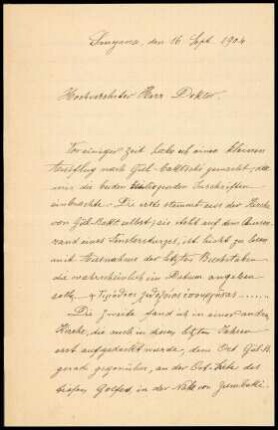 Smyrna, den 16 Sept. 1904
Hochverehrter Herr Doktor.
Vor einiger Zeit habe ich einen kleinen
Ausflug nach Gül-baktsché gemacht, der
mir die beiden Inschriften
einbrachte. Die erste stammt aus der Kirche
von Gül-Bakt. selbst; sie steht auf dem Aussen-
rand eines, ist leicht zu lesen
mit Ausnahme der letzten Buchstaben
die wahrscheinlich ein Datum angeben
Die zweite fand ich in einer andern
Kirche, die auch in diesen letzten Jahren
erst aufgedeckt wurde, dem Ort Gül-B.
gerade gegenüber, an der Ost-Seite des
tiefen Golfes, in der Nähe von